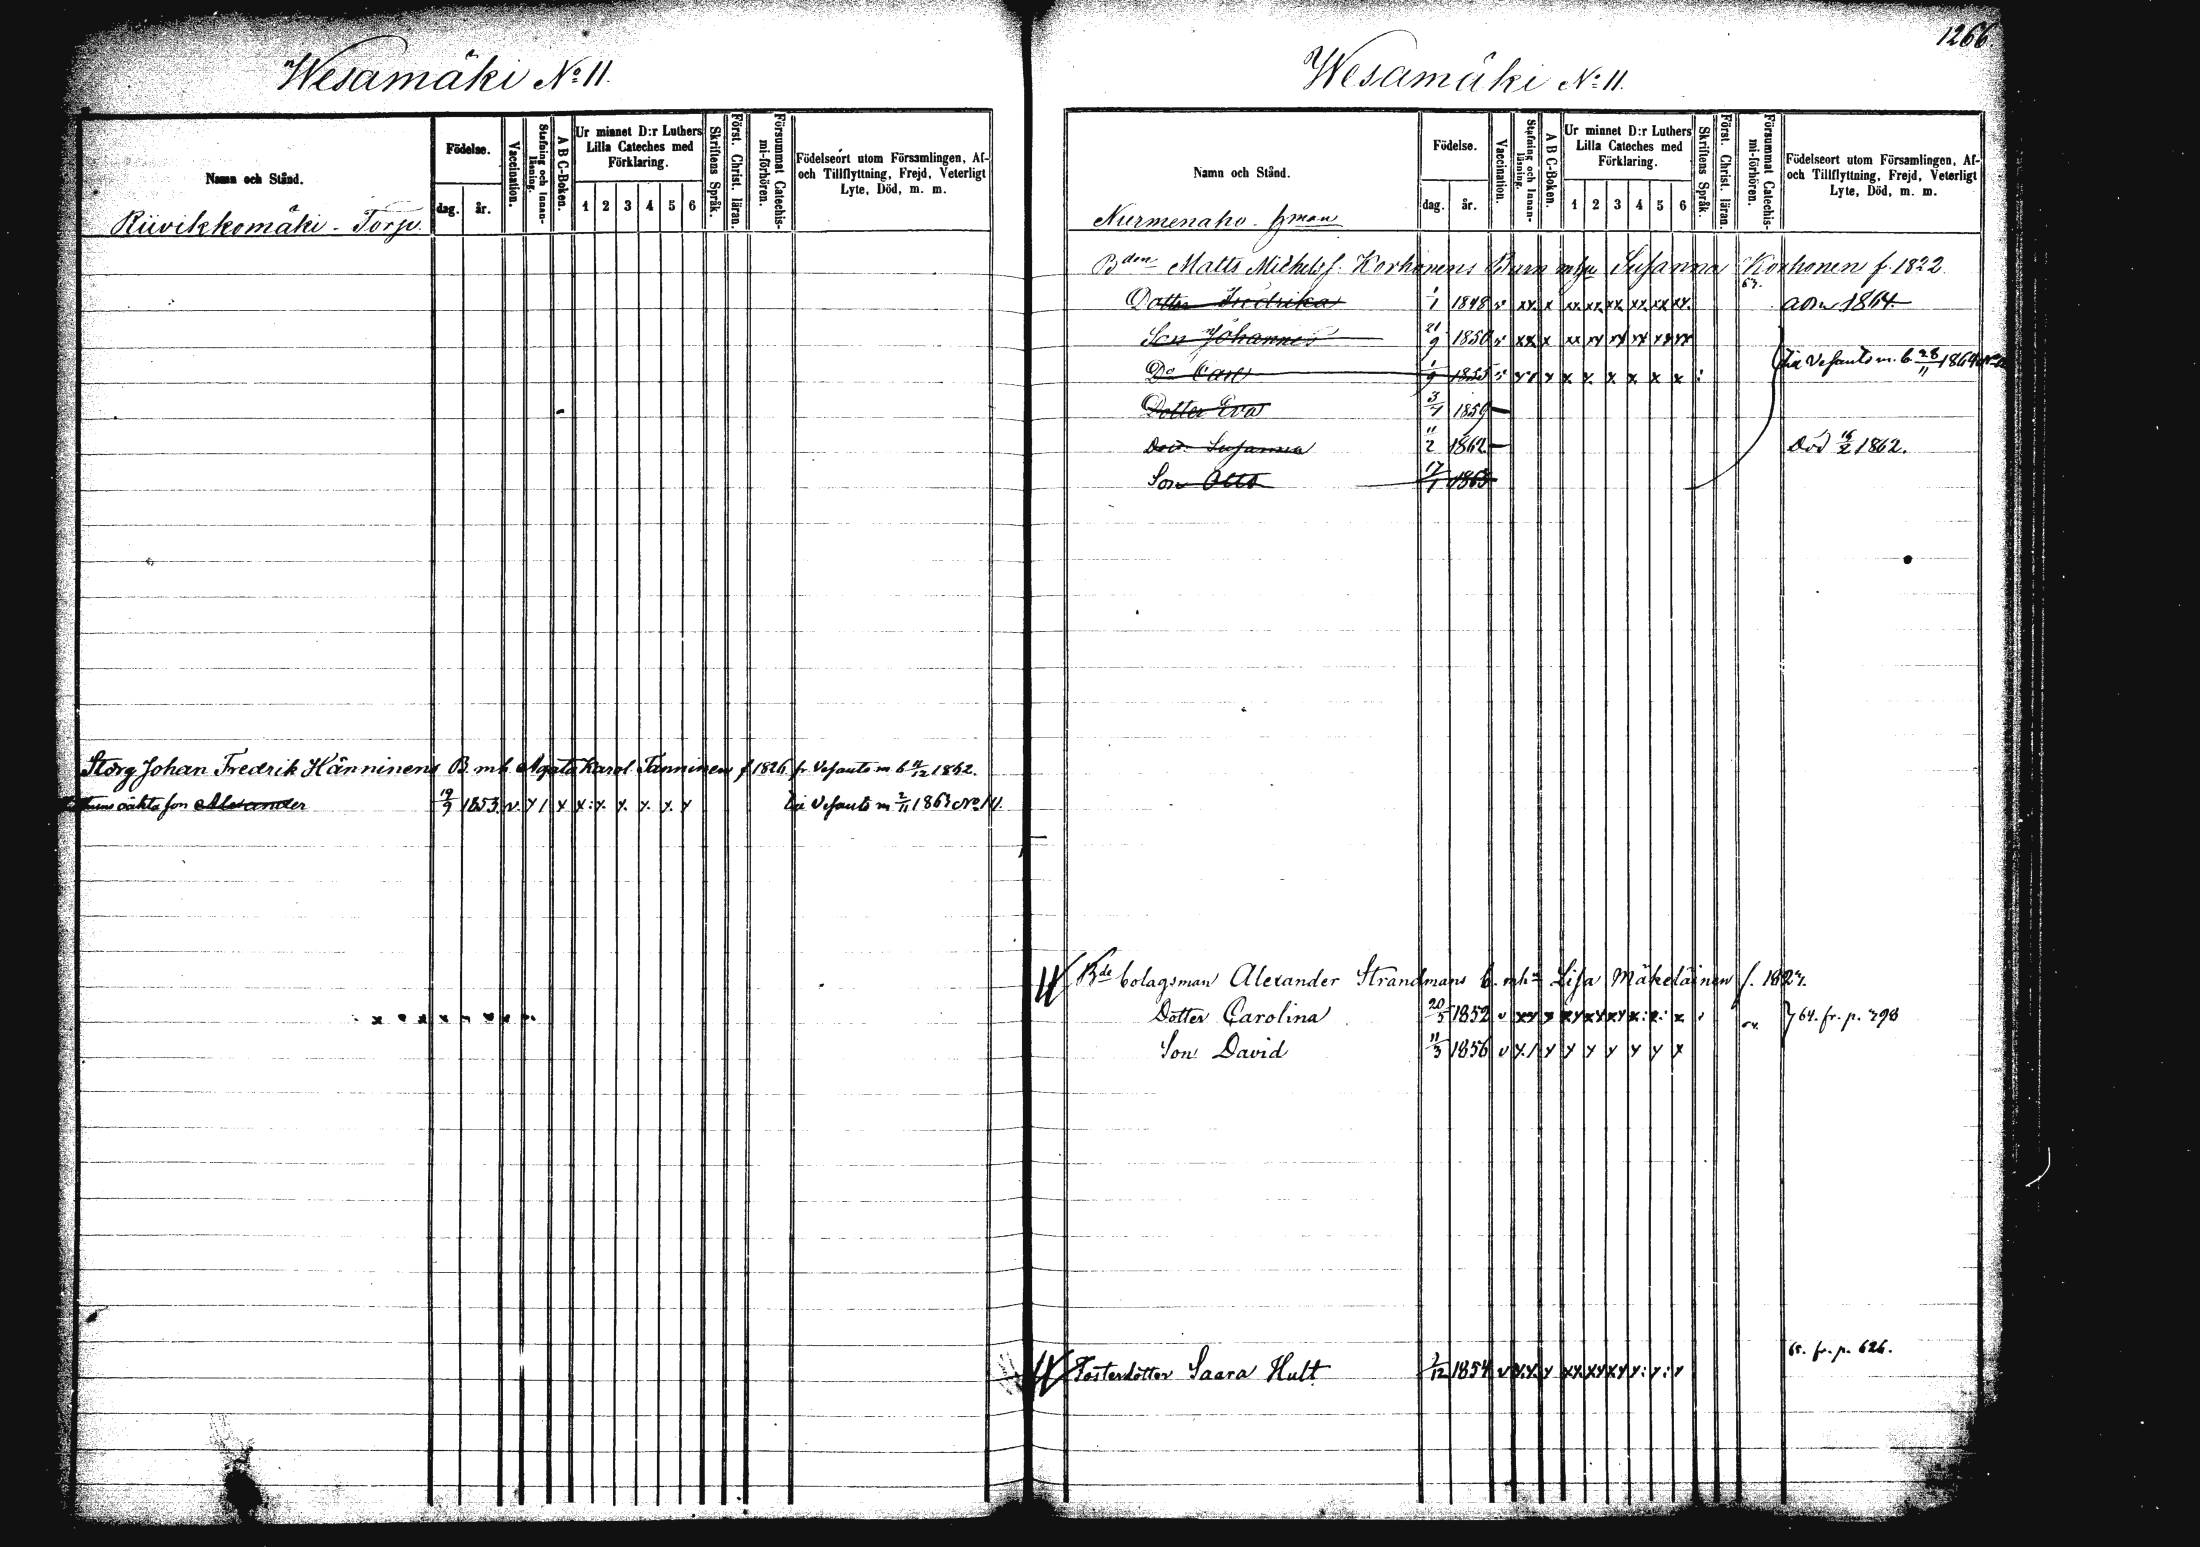 1266.
Wesamäki No 11.
Namn och Stånd.
Födelse.
dag. år.
Vaccination.
Stafning och Innan-läsning.
A B C-Boken.
Ur minnet D:r Luthers Lilla Cateches med Förklaring.
1 2 3 4 5 6
Skriftens Språk.
Först. Christ. läran.
Försummat Catechis-mi-förhören.
Födelseort utom Församlingen, Af- och Tillflyttning, Frejd, Veterligt Lyte, Död, m. m.
Riivikkomäki - Torp.
Storg Johan Fredrik Hänninens B. mh Agata Karol. Tanninen f 1826 fr Vesanto m b 11/12 1862.
oäkta son Alexander 19/9 1853. v. y / x x: y. y. y. y. y till Vesanto m 2/11 1863 No 14.
Wesamäki No 11.
Namn och Stånd.
Födelse.
dag. år.
Vaccination.
Stafning och Innan-läsning.
A B C-Boken.
Ur minnet D:r Luthers Lilla Cateches med Förklaring.
1 2 3 4 5 6
Skriftens Språk.
Först. Christ. läran.
Försummat Catechis-mi-förhören.
Födelseort utom Församlingen, Af- och Tillflyttning, Frejd, Veterligt Lyte, Död, m. m.
Nurmenaho - hman
Bden Matts Michelss: Korhonens Barn Susanna Korhonen f. 1822.
Dotter Fredrika 1/1 1848 v xx. x xx. xx. xx. xx. xx xx. 63. adm 1864.
Son Johannes 21/9 1850 v xx x xx xy xy xy xy xy
Do Carl 1/9 1855 v y / y x. x. x. x. x x :
till Vesanto m. b. 28/11 1864
Dotter Eva 3/7 1859 —
Dotr Susanna 11/2 1862 — Död 16/2 1862.
Son Otto 17/1 1863
Bde bolagsman Alexander Strandmans b. mhu Lisa Mäkeläinen f. 1827.
Dotter Carolina 20/5 1852 v xy y xy xy xy x: x: x 64. fr. p. 798
Son David 11/3 1856 v y. / y y y y y y x
65. fr. p. 626.
Fosterdotter Saara Hult 3/12 1854 v y.y. y xy. xy xy y: y: y